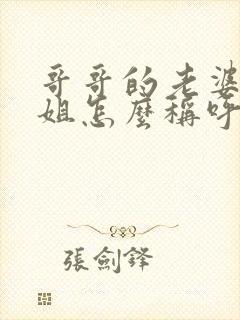 哥哥的老婆
姐怎麼稱呼
張劍鋒